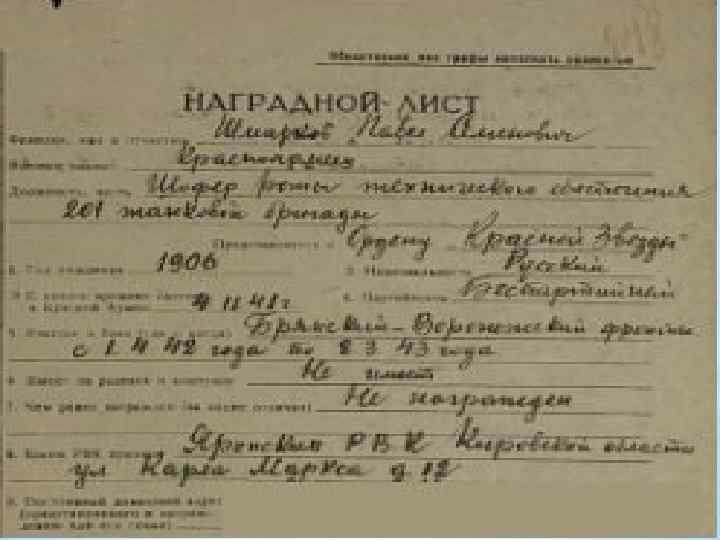 Обязательно все графы заполнять
НАГРАДНОЙ ЛИСТ
Фамилия, имя и отчество Шмарков Павел Семенович
Военное звание Красноармеец
Должность, часть Шофер роты технического обеспечения
201 танковой бригады
Представляется к Ордену Красной Звезды
1. Год рождения 1906 2. Национальность Русский
3. С какого времени состоит
в Красной Армии 4 11 41 г 4. Партийность Беспартийный
5. Участие в боях (где и когда) Брянский-Воронежский фронты
с 1 4 42 года по 2 3 43 года
6. Имеет ли ранения и контузии Не имеет
7. Чем ранее награжден (за какие отличия) Не награжден
8. Каким РВК призван Яранским РВК Кировской области
ул Карла Маркса д 12
9. Постоянный домашний адрес